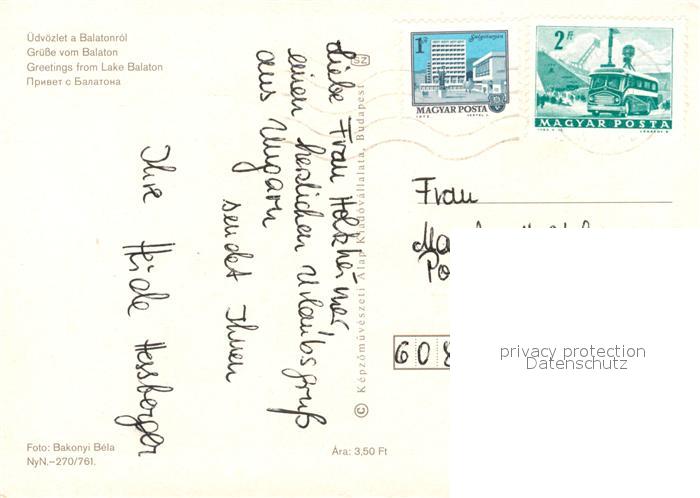 Üdvözlet a Balatonról
Grüße vom Balaton
Greetings from Lake Balaton
Привет с Балатона
Liebe Frau Holzheimer,
einen herzlichen Urlaubsgruß
aus Ungarn
sendet Ihnen
Ihre Heide Hessberger
SZ
© Képzőművészeti Alap Kiadóvállalata, Budapest
1 Ft
Salgótarján
MAGYAR POSTA
1972
2 Ft
MAGYAR POSTA
Frau
Po
608
privacy protection
Datenschutz
Foto: Bakonyi Béla
NyN.–270/761.
Ára: 3,50 Ft